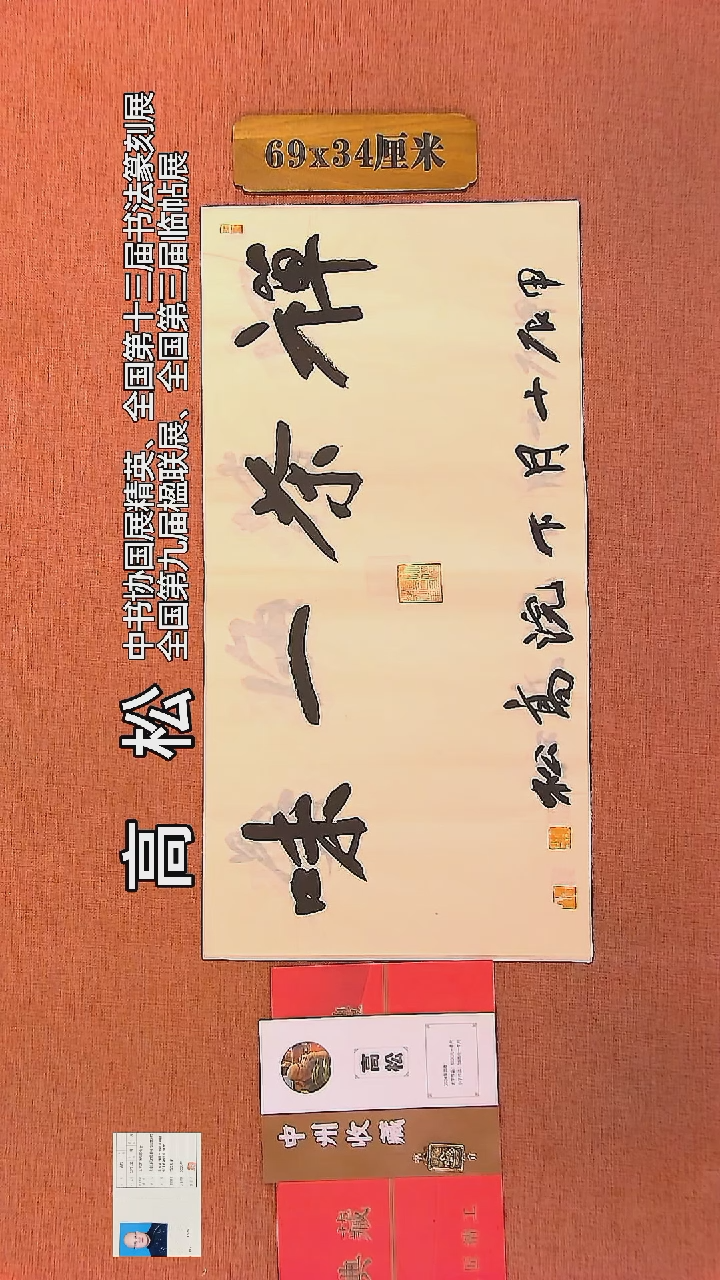 高松
中书协国展精英、全国第十三届书法篆刻展
全国第九届楹联展、全国第三届临帖展
69x34厘米
禅茶一味
甲辰十月下浣高松
高松
中州收藏
典藏